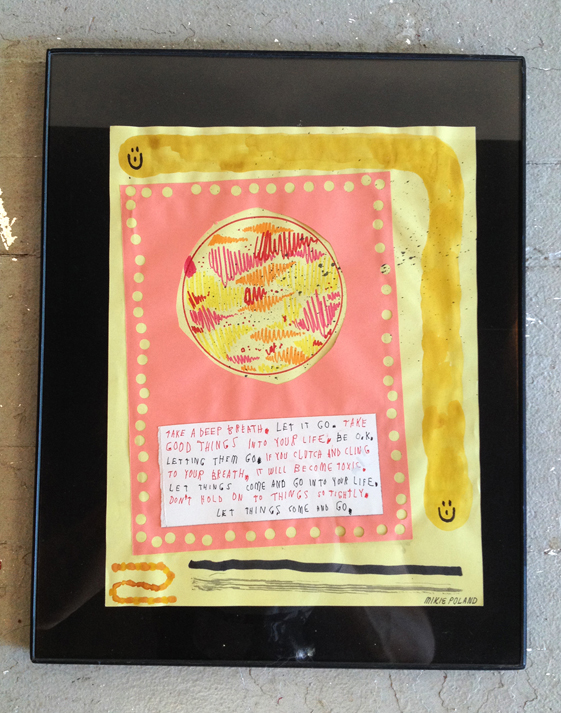 TAKE A DEEP BREATH. LET IT GO. TAKE
GOOD THINGS INTO YOUR LIFE. BE O.K.
LETTING THEM GO. IF YOU CLUTCH AND CLING
TO YOUR BREATH, IT WILL BECOME TOXIC.
LET THINGS COME AND GO INTO YOUR LIFE.
DON'T HOLD ON TO THINGS SO TIGHTLY.
LET THINGS COME AND GO.
MIKIE POLAND